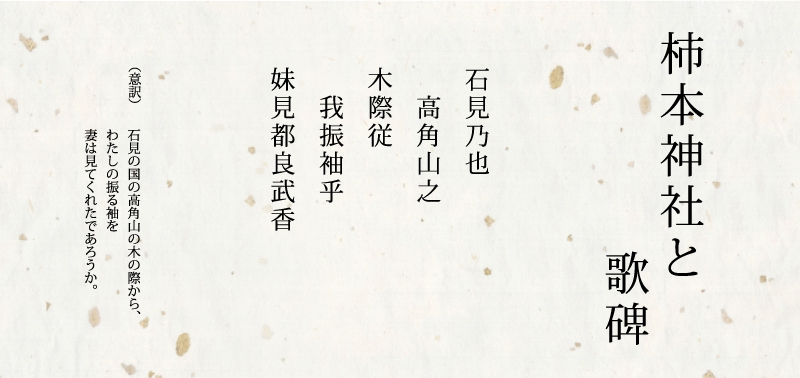 柿本神社と
歌碑
石見乃也
高角山之
木際従
我振袖乎
妹見都良武香
（意訳）　石見の国の高角山の木の際から、
わたしの振る袖を
妻は見てくれたであろうか。